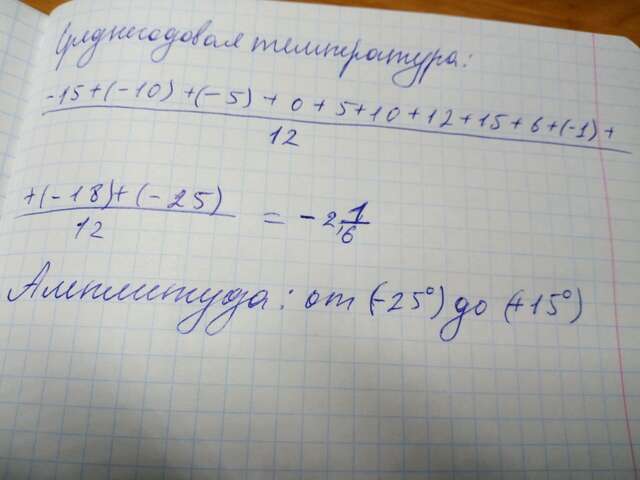 Среднегодовая температура:
-15+(-10)+(-5)+0+5+10+12+15+6+(-1)+
12
+(-18)+(-25)
12
= -2 1/6
Амплитуда: от (-25°) до (+15°)